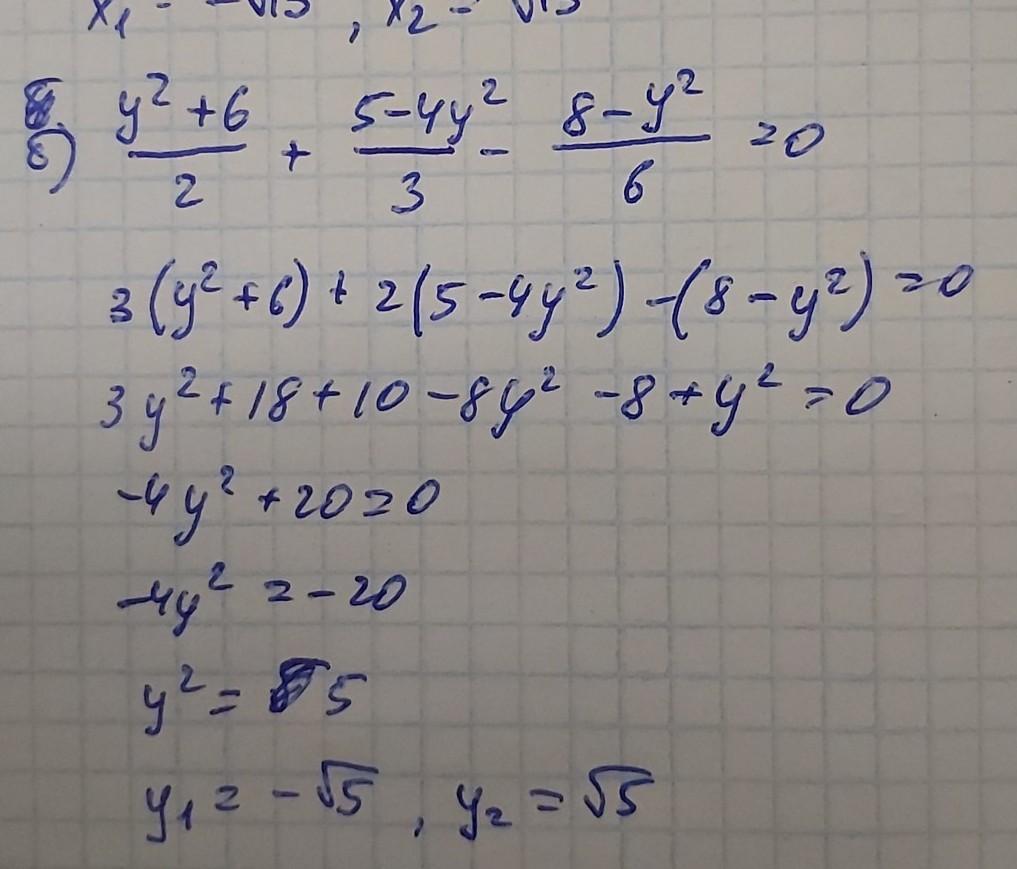 x₁ = -√13, x₂ = √13
б) (y² + 6)/2 + (5 - 4y²)/3 - (8 - y²)/6 = 0
3(y² + 6) + 2(5 - 4y²) - (8 - y²) = 0
3y² + 18 + 10 - 8y² - 8 + y² = 0
-4y² + 20 = 0
-4y² = -20
y² = 5
y₁ = -√5, y₂ = √5